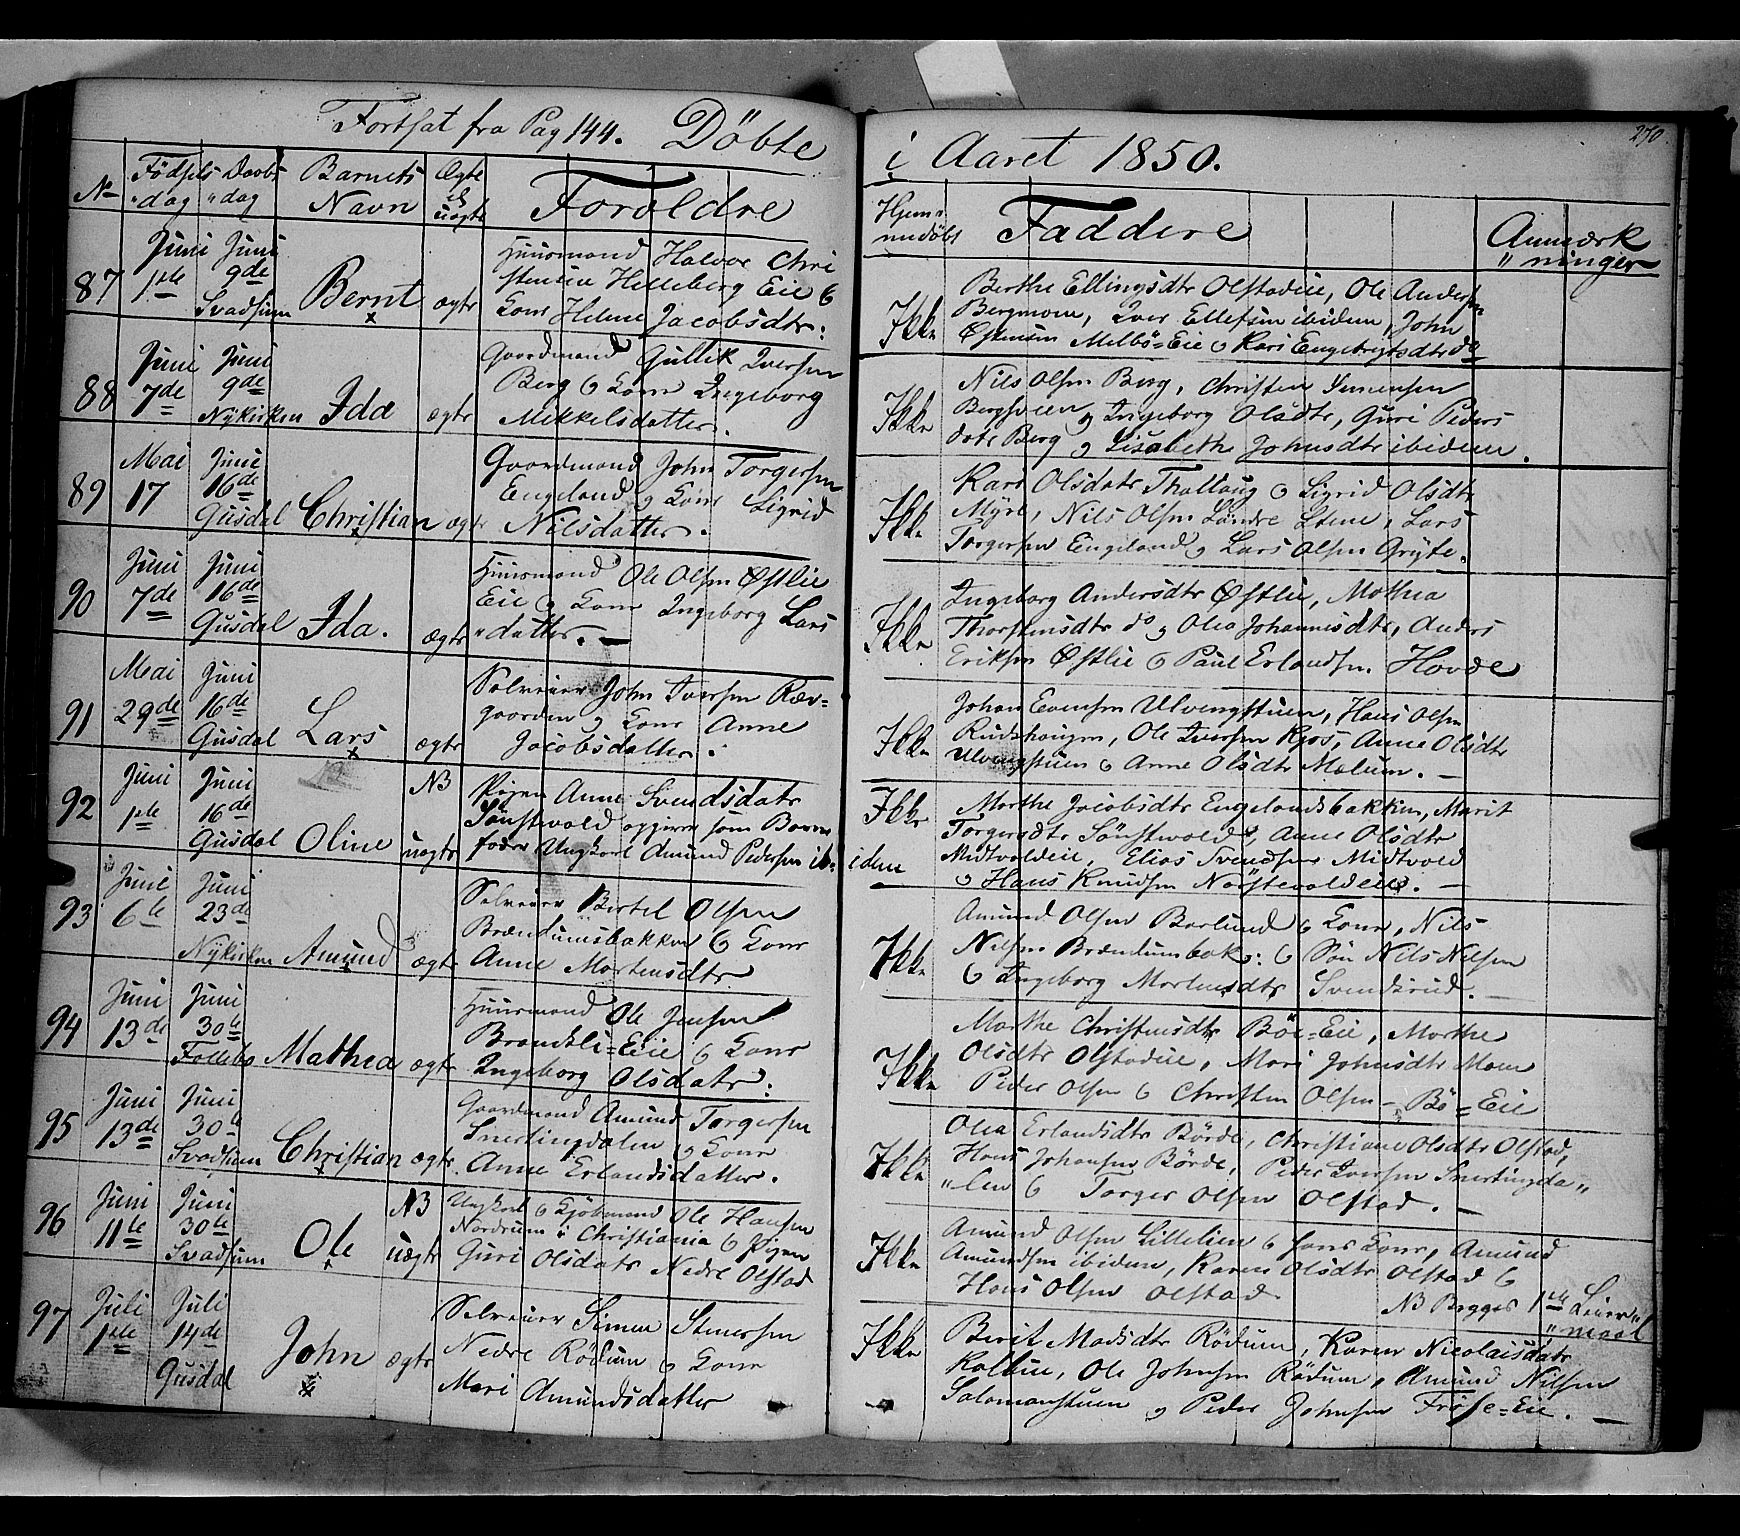 Fortsat fra Pag 144. Döbte
i Aaret 1850.
270
No Födsels dag Daabs dag Barnets Navn Ægte el uægte Foreldre
Hjemmedöbt Faddere Anmærkninger
87 Juni 1ste Juni 9de Svadsum Bernt ægte
Huusmand Halvor Christensen Helleberg Eie &
Kone Helene Jacobsdtr:
Ikke
Berthe Ellingsdtr Olstadeie, Ole Andersen
Bergmoen, Iver Ellefsen ibidem, John
Østensen Melbö=Eie & Kari Engebrigtsdtr do
88 Juni 7de Juni 9de Nykirken Ida ægte
Gaardmand Gullik Iversen
Berg & Kone Ingeborg
Mikkelsdatter.
Ikke
Nils Olsen Berg, Christen Simensen
Bergsveen og Ingeborg Olsdtr, Guri Peders
datr Berg og Lisabethe Johnsdtr ibidem.
89 Mai 17 Juni 16de Gusdal Christian ægte
Gaardmand John Torgersen
Engeland og Kone Sigrid
Nilsdatter.
Ikke
Kari Olsdatr Thallaug & Sigrid Olsdtr
Myre, Nils Olsen Söndre Stene, Lars
Torgersen Engeland og Lars Olsen Gryte.
90 Juni 7de Juni 16de Gusdal Ida. ægte
Huusmand Ole Olsen Østlie
Eie & Kone Ingeborg Lars
"datter.
Ikke
Ingeborg Andersdtr Østlie, Mathea
Thorstensdtr do og Olea Johannisdtr, Anders
Eriksen Østlie & Paul Erlandsen Hovde
91 Mai 29de Juni 16de Gusdal Lars ægte
Selveier John Iversen Ræv=
gaarden og Kone Anne
Jacobsdatter.
Ikke
Johan Evensen Ulvengstuen, Hans Olsen
Rudshougen, Ole Iversen Kjos, Anne Olsdtr
Ulvengstuen & Anne Olsdtr Malum.
92 Juni 1ste Juni 16de Gusdal Oline NB uægte
Pigen Anne Svendsdatr
Sönstevold opgiven som Barne
fader Ungkarl Amund Pedersen ib=
idem
Ikke
Marthe Jacobsdtr Engelandsbakken, Marit
Torgersdtr Sönstevold, Anne Olsdtr
Midtvoldeie, Elias Svendsen Midtvold
& Hans Knudsen Nörstevoldeie.
93 Juni 6te Juni 23de Nykirken Amund ægte
Selveier Bertel Olsen
Brændumsbakken & Kone
Anne Mortensdtr
Ikke
Amund Olsen Barlund & Kone, Nils
Nilsen Brændumbak: & Sön Nils Nilsen
& Ingeborg Mortensdtr Svendsrud.
94 Juni 13de Juni 30te Follebo Mathea ægte
Huusmand Ole Jensen
Brandli=Eie & Kone
Ingeborg Olsdatr.
Ikke
Marthe Christensdtr Böe=Eie, Marthe
Olsdtr Olstadeie, Mari Johnsdtr Moen
Peder Olsen & Christen Olsen Bö=Eie
95 Juni 13de Juni 30te Svadsum Christian ægte
Gaardmand Amund Torgersen
Snertingdalen og Kone
Anne Erlandsdatter.
Ikke
Olia Erlandsdtr Börde, Christiane Olsdtr Olstad,
Hans Johansen Börde, Peder Iversen Snertingda"
"len & Torger Olsen Olstad.
96 Juni 11te Juni 30te Svadsum Ole NB uægte
Ungkarl & Kjöbmand Ole Hansen
Nordrum i Christiania & Pigen
Guri Olsdatr Nedre Olstad
Ikke
Amund Olsen Lillelien & hans Kone, Amund
Amundsen ibidem, Karen Olsdtr Olstad &
Hans Olsen Olstad.
NB Begges 1ste Leier"
"maal
97 Juli 1ste Juli 14de Gusdal John ægte
Selveier Simen Stenersen
Nedre Rödum & Kone
Mari Amundsdatter
Ikke
Berit Madsdtr Rödum, Karen Nicolaisdatr
Kalleie, Ole Johnsen Rödum, Amund Nilsen
Salomonstuen og Peder Johnsen Frise=Eie.